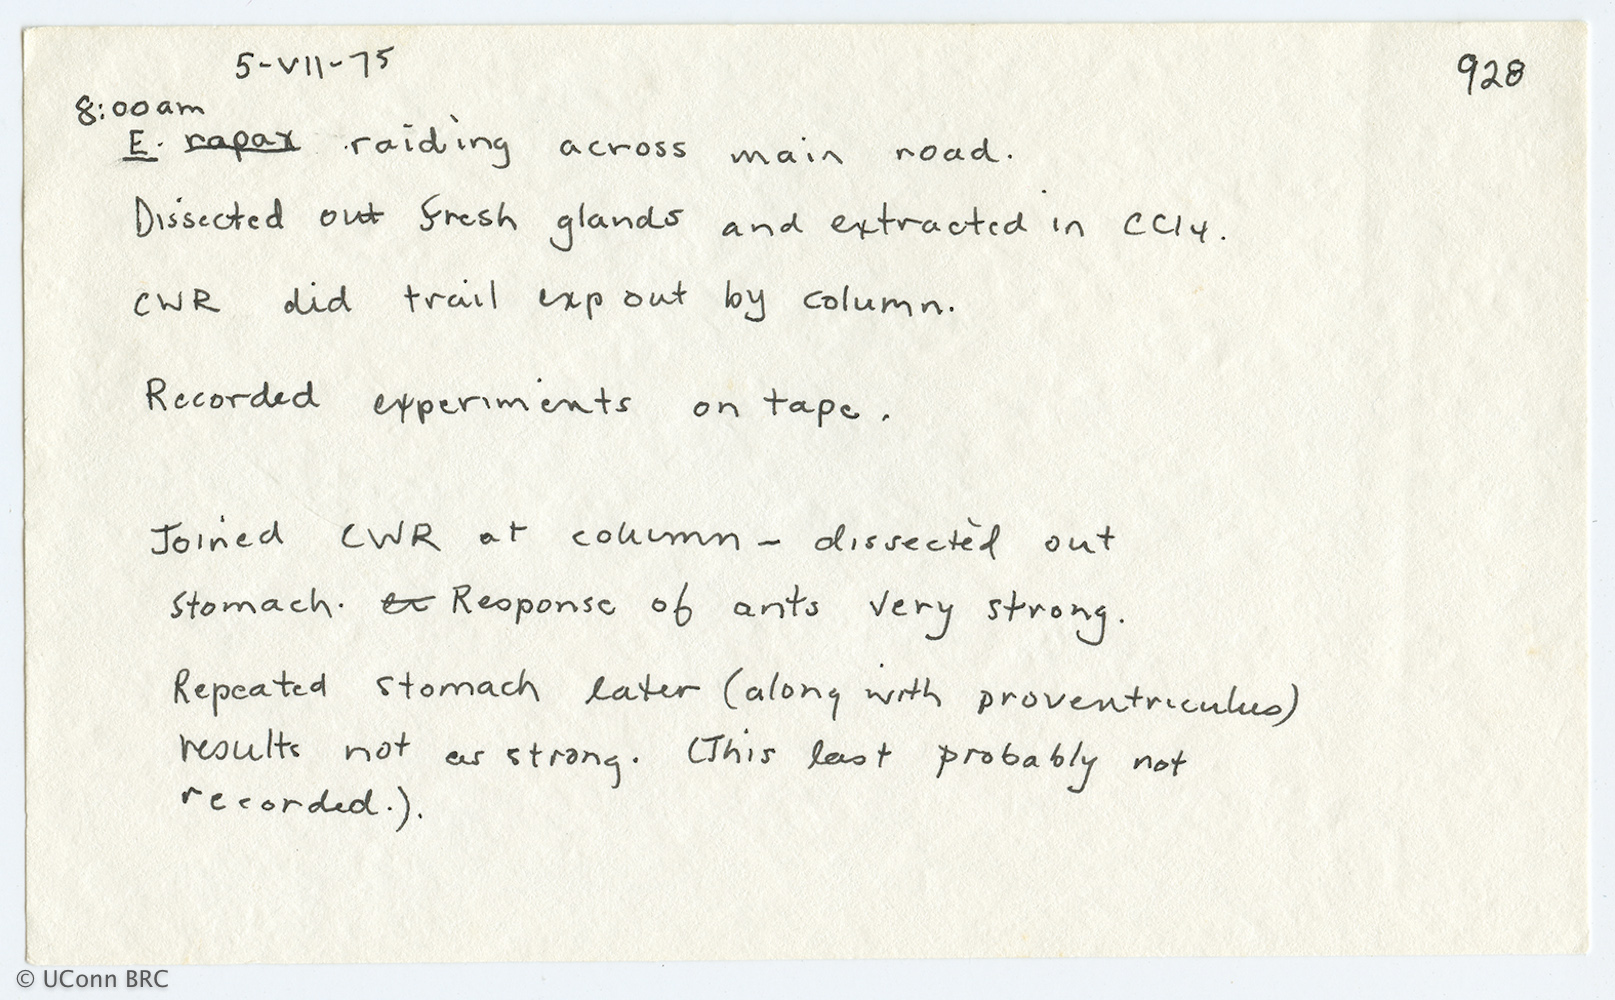 5-VII-75
928
8:00am
E. rapax raiding across main road.
Dissected out fresh glands and extracted in CCl4.
CWR did trail exp out by column.
Recorded experiments on tape.
Joined CWR at column - dissected out
stomach. Response of ants very strong.
Repeated stomach later (along with proventriculus)
results not as strong. (This last probably not
recorded.).
© UConn BRC